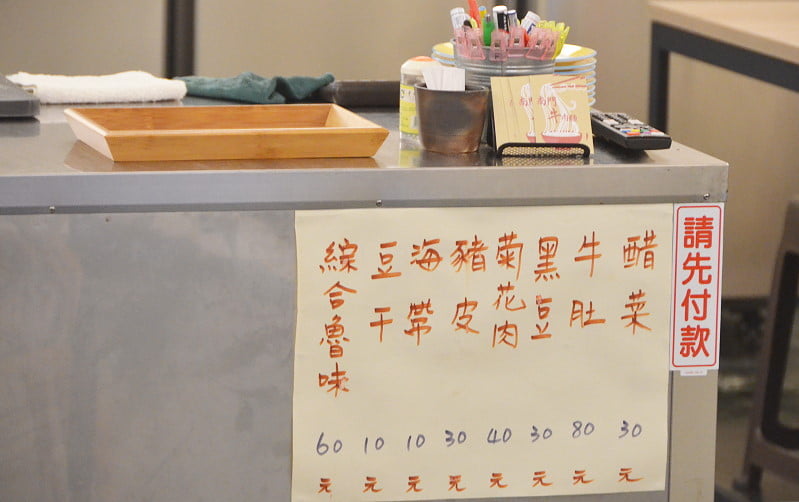 請先付款
醋菜 30元
牛肚 80元
黑豆 30元
菊花肉 40元
豬皮 30元
海帶 10元
豆干 10元
綜合魯味 60元
南門
牛肉麵